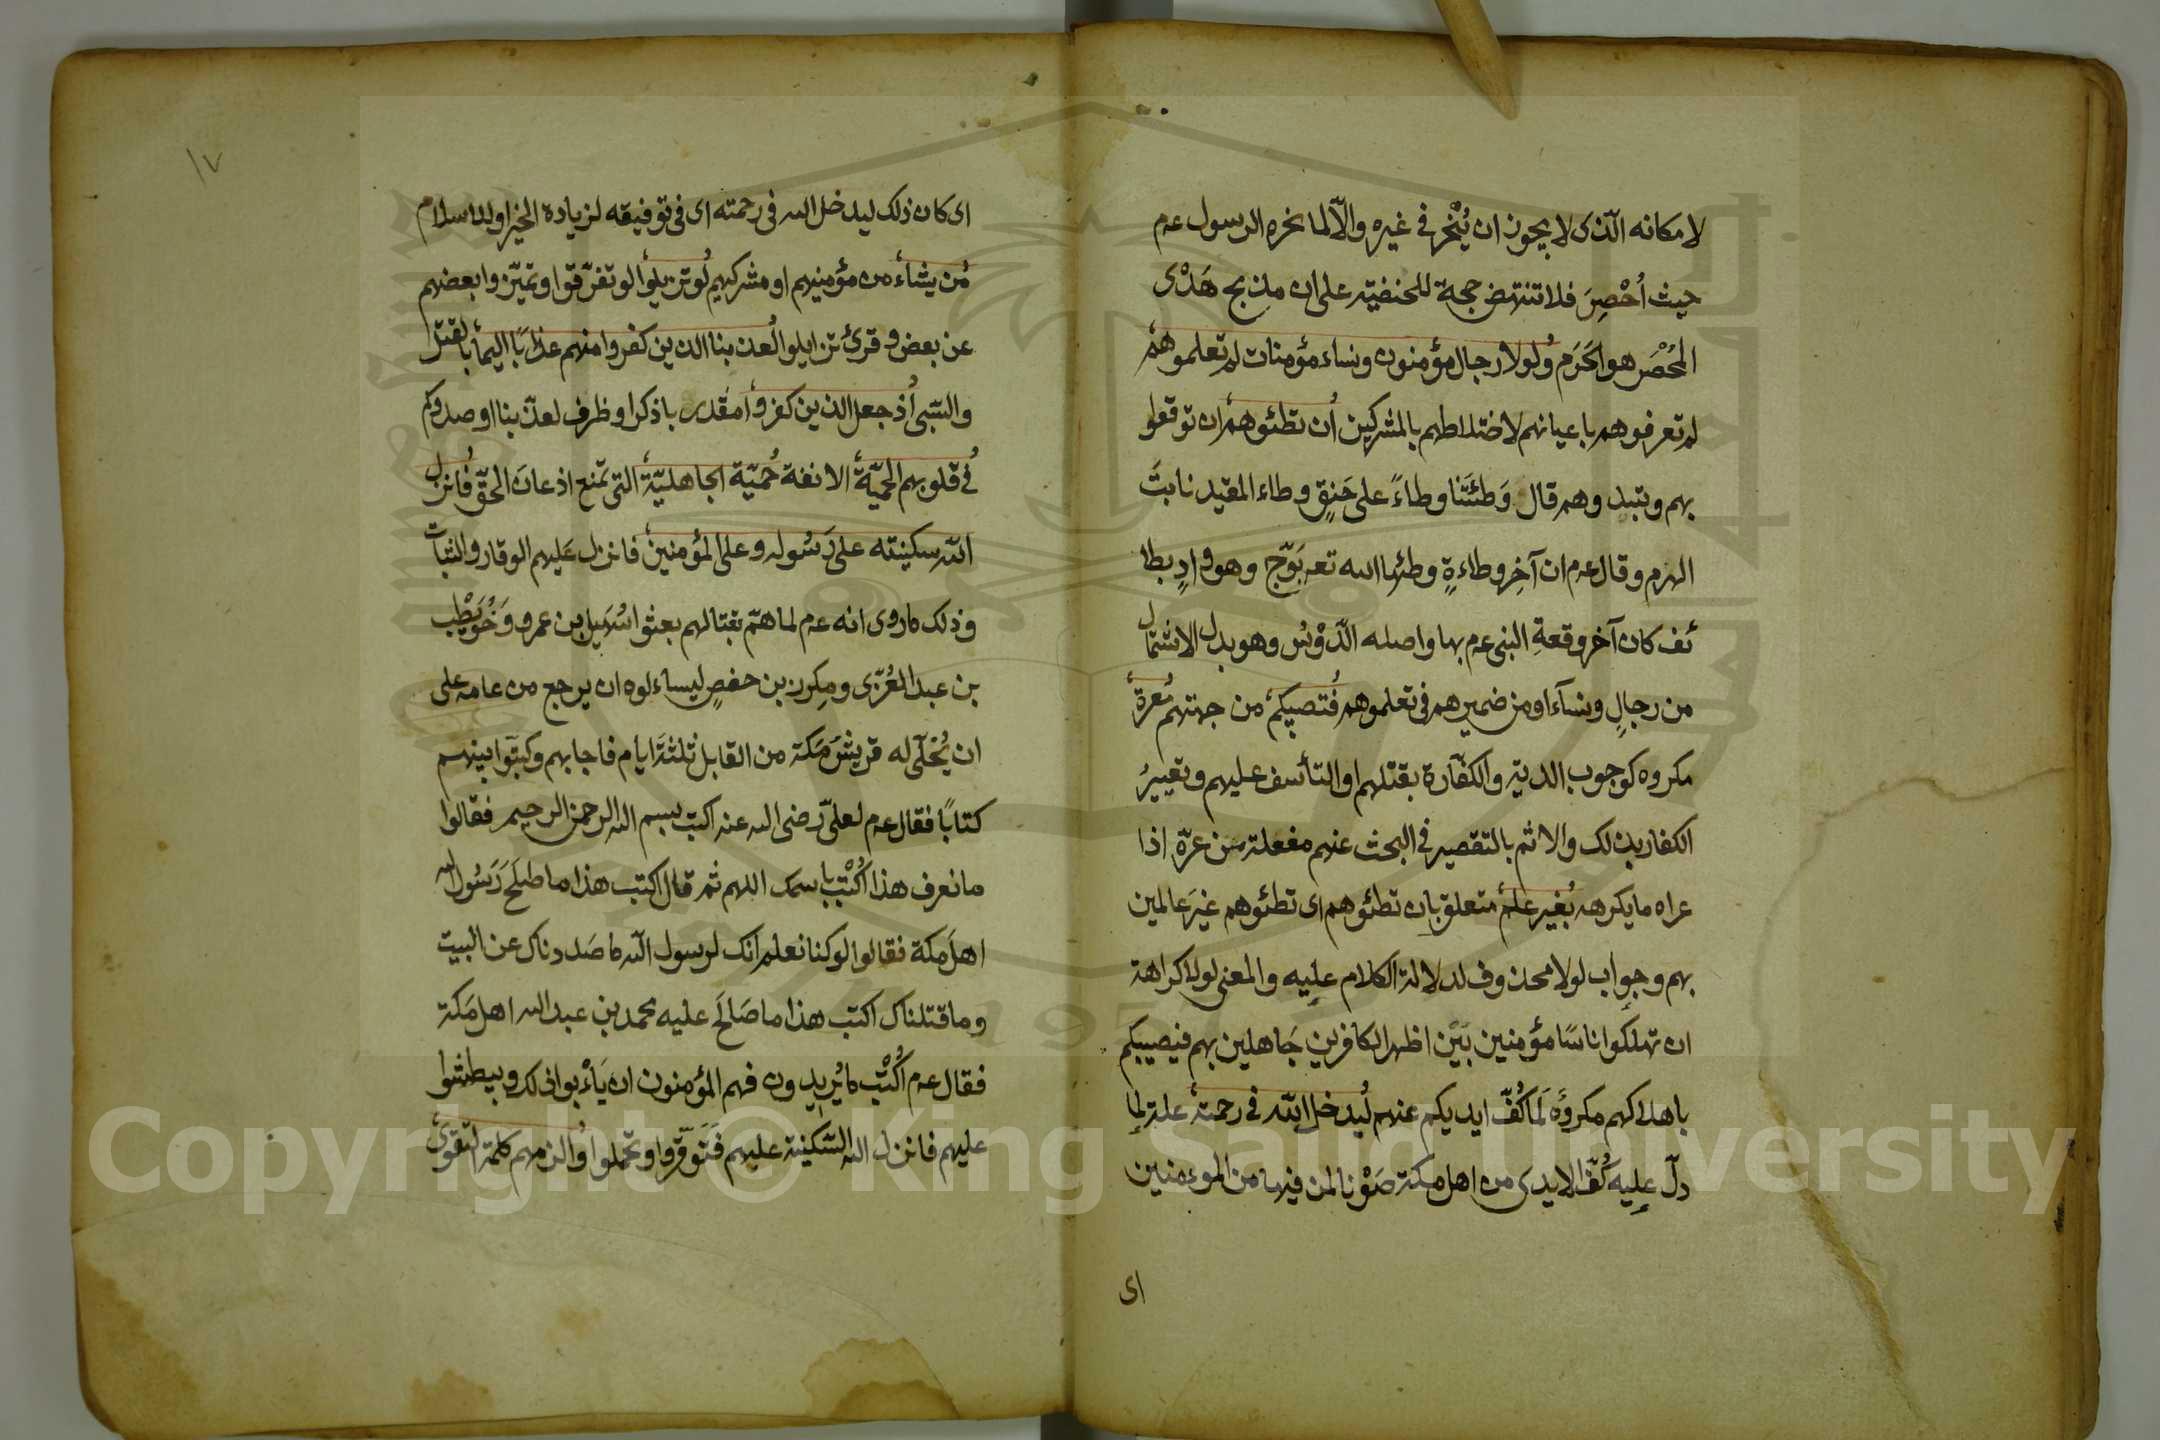 لا مكانه الّذى لا يجوز ان يُنْحر فى غيره والّا لما نحره الرسول عم
حيث اُحْصِرَ فلا تنتهض حجة للحنفيّه على ان مذبح هَدْى
المُحْصَر هو الحَرَم ولولا رجال مؤمنون ونساء مؤمنات لم تعلموهم
لم تعرفوهم باعيانهم لاختلاطهم بالمشركين أن تطئوهم ان توقعوا
بهم وتبيدوهم قال وَطئَتَنا وطاءً على حَنِقٍ وطاء المقيد نابتَ
الهرم وقال عم ان آخِر وطاءةٍ وطئها الله تعه بَوّج وهو وادٍ بطا
ئف كان آخر وقعةِ النبى عم بها واصله الّدوْس وهو بدل الاشتمال
من رجالٍ ونساء او من ضميرهم فى تعلموهم فتصيبكم من جهتهم معرة
مكروه كوجوب الديّه والكفّارة بقتلهم او التأسف عليهم وتعييرُ
الكفار بذلك والاثم بالتقصير فى البحث عنهم مفعلة من عرّه اذا
عراه ما يكرهه بغير علم متعلق بان تطئوهم اى تطئوهم غيرَ عالمين
بهم وجواب لولا محذوف لدلالة الكلام عليه والمعنى لولا كراهة
ان تهلكوا اناسًا مؤمنين بَيْن اظهر الكافرين جَاهلين بهم فيصيبكم
باهلاكهم مكروه لَما كُفّ ايديكم عنهم ليدخل الله فى رحمته علة لِما
دلّ عليه كُفّ الايدى من اهل مكة صَوْنا لمن فيها من الموءمنين
اى
١٧
اى كان ذلك ليدخل الله فى رحمته اى فى توفيقه لزيادة الخير او للاسلام
من يشاء من مؤمنيهم او مشركيهم لوتزيلوا لو تفرّقوا وتميّزوا بعضهم
عن بعض وقرئ تزايلوا لعذبنا الذين كفروا منهم عذابًا اليما بالقتل
والسّبى اذ جعل الذين كفروا مقدر باذكر او ظرف لعذّبنا او صدوكم
فى قلوبهم الحميّة الانفة حَميّة الجاهليّة التى تمنع اذعانَ الحقّ فانزل
الله سكينته على رَسُوله وعلى المؤمنين فانزل عَليهم الوقار والثبات
وذلك ما روى انه عم لما همّ بقتالهم بعثوا سُهَيل بن عمرو وَحُوَيْطب
بن عبد العُزّى ومِكرز بن حفصٍ ليساءلوه ان يرجع من عامه على
ان يُخلّى له قريش مَكة من القابل ثلثةَ ايام فاجابهم وكتبوا بينهم
كتابًا فقال عم لعلىّ رضى الله عنه اكتب بسم الله الرحمن الرحيم فقالوا
ما نعرف هذا اُكْتب باسمك اللهم ثم قال اكتب هذا ما صَلحَ رَسُول الله
اهلَ مكة فقالوا لو كنا نعلم انك لرسول الله ما صَددناك عن البيت
وما قتلناك اكتب هذا ما صَالَحَ عليه محمد بن عبد الله اهل مَكة
فقال عم اُكُتْب ما يُريدون فهم المؤمنون ان يَأْبوا ذلك ويبطشوا
عليهم فانزل الله السّكينة عليهم فَتَوقّروا وتحَملوا والزمهم كلمة التقوى
Copyright © King Saud University